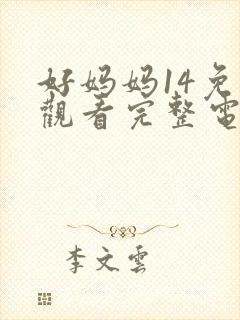 好妈妈14免
觀看完整電
李文雲